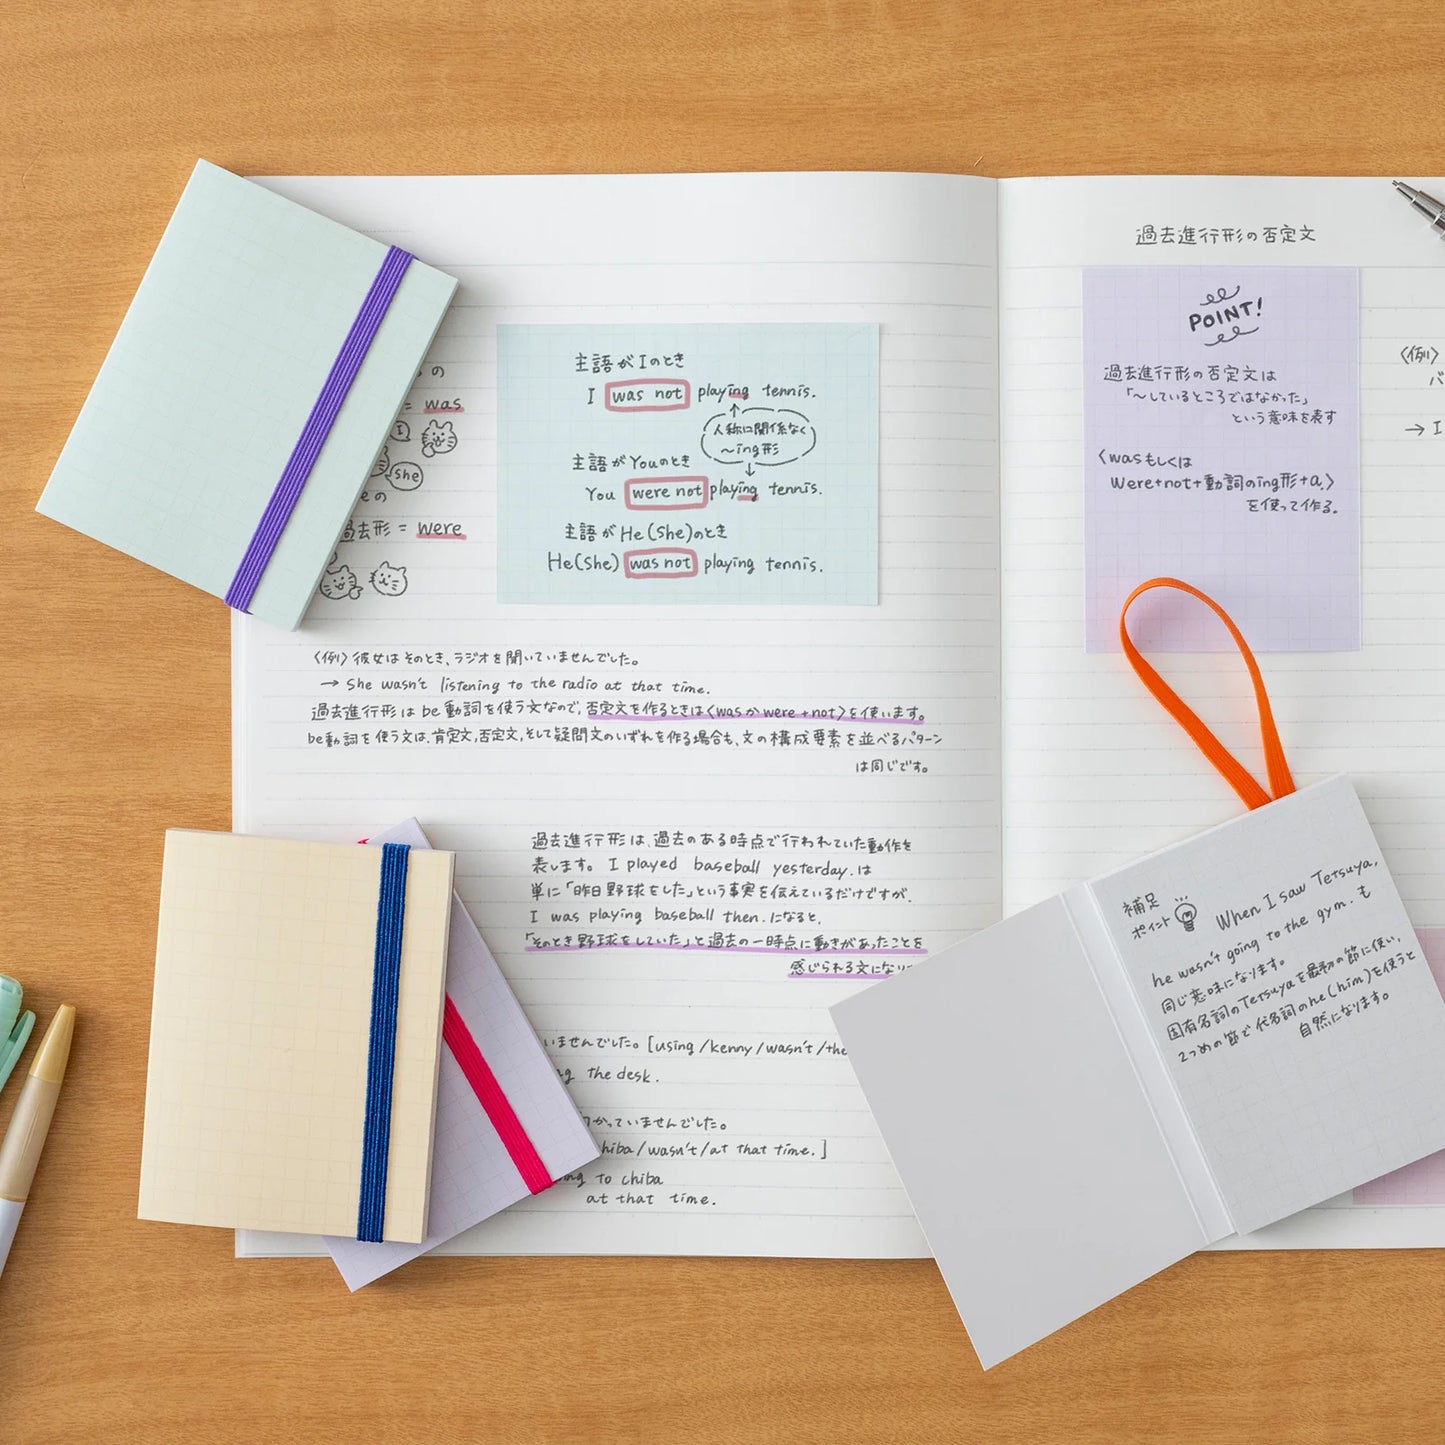 の
= was
I
She
の
過去形 = were
主語が Iのとき
I was not playing tennis.
人称に関係なく
〜ing形
主語が Youのとき
You were not playing tennis.
主語が He(She)のとき
He(She) was not playing tennis.
〈例〉彼女はそのとき、ラジオを聞いていませんでした。
→ She wasn't listening to the radio at that time.
過去進行形は be動詞を使う文なので、否定文を作るときは〈wasか were + not〉を使います。
be動詞を使う文は、肯定文、否定文、そして疑問文のいずれを作る場合も、文の構成要素を並べるパターン
は同じです。
過去進行形は、過去のある時点で行われていた動作を
表します。I played baseball yesterday. は
単に「昨日野球をした」という事実を伝えているだけですが、
I was playing baseball then. になると、
「そのとき野球をしていた」と過去の一時点に動きがあったことを
感じられる文になり
いませんでした。[using / kenny / wasn't / the
ng the desk.
かっていませんでした。
hiba / wasn't / at that time.]
ng to chiba
at that time.
過去進行形の否定文
POINT!
過去進行形の否定文は
「〜しているところではなかった」
という意味を表す
〈wasもしくは
were+not+動詞のing形+a.〉
を使って作る。
〈例〉
バ
→ I
補足
ポイント
When I saw Tetsuya,
he wasn't going to the gym. も
同じ意味になります。
固有名詞のTetsuyaを最初の節に使い、
2つめの節で代名詞のhe(him)を使うと
自然になります。